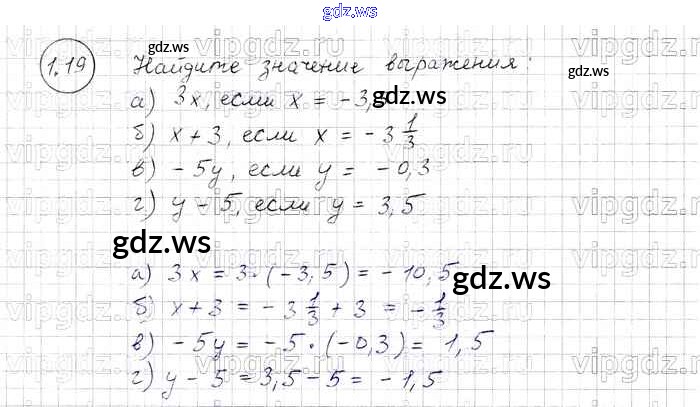 gdz.ws
1.19 Найдите значение выражения:
а) 3x, если x = -3,
б) x + 3, если x = -3 1/3
в) -5y, если y = -0,3
г) y - 5, если y = 3,5
а) 3x = 3·(-3,5) = -10,5
б) x + 3 = -3 1/3 + 3 = -1/3
в) -5y = -5·(-0,3) = 1,5
г) y - 5 = 3,5 - 5 = -1,5
gdz.ws
gdz.ws
gdz.ws
gdz.ws
gdz.ws
vipgdz.ws